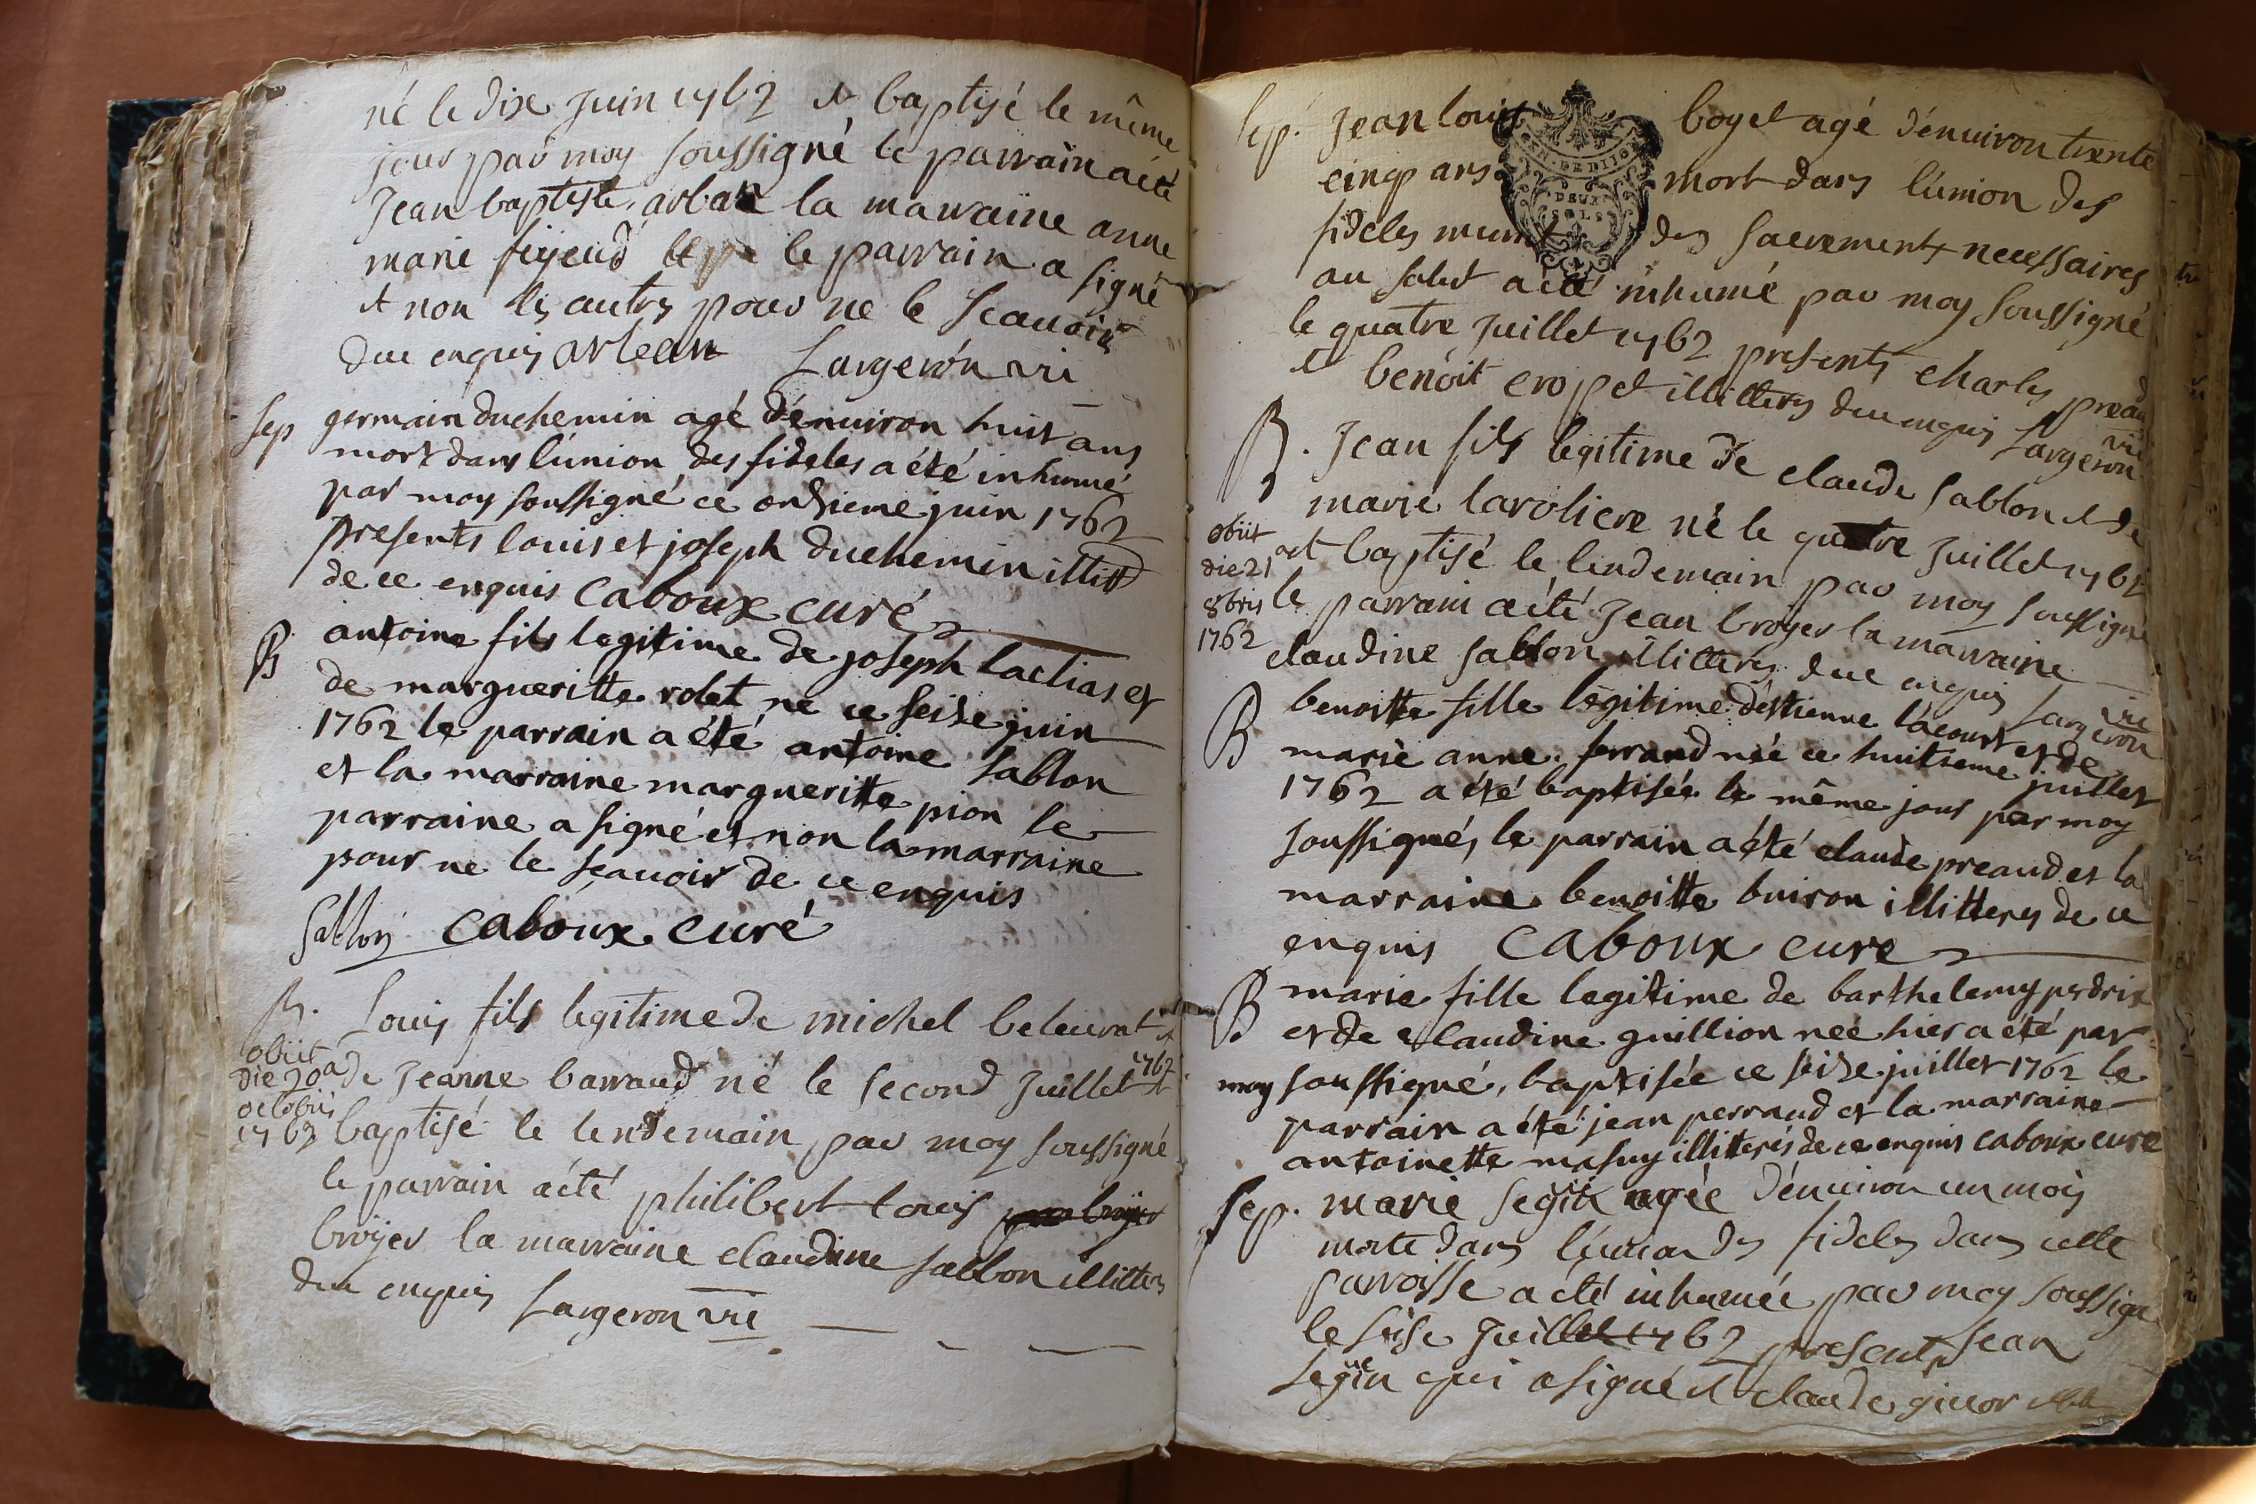 né le dix juin 1762 et baptisé le même
jour par moy soussigné le parrain a été
Jean baptiste arban la marraine anne
marie le parrain a signé
et non les autres pour ne le scauoir
due enquis arban Largeron vic
Sep germain duchemin agé d'enuiron huit ans
mort dans l'union des fideles a été inhumé
par moy soussigné ce onzieme juin 1762
presents louis et joseph duchemin illitt
de ce enquis caboux curé
B antoine fils legitime de joseph laclias et
de margueritte rolet ne ce seize juin
1762 le parrain a été antoine sablon
et la marraine margueritte pion le
parraine a signé et non la marraine
pour ne le scauoir de ce enquis
Sablon caboux curé
B. Louis fils legitime de michel beleurat et
de Jeanne barraud né le second Juillet 1762 et
obiit
die 20a
octobris
1762
baptisé le lendemain par moy soussigné
le parrain a été philibert louis
broyer la marraine claudine sablon illitteres
due enquis Largeron vic
Sep. Jean louis boyet agé d'enuiron trente
cinq ans mort dans l'union des
fideles muni des sacrements necessaires
au salut a été inhumé par moy soussigné
le quatre juillet 1762 presents charles preaud
et benoit cropet illitteres due enquis Largeron vic
GEN. DE DIJON
DEUX
SOLS
B. Jean fils legitime de claude sablon et de
marie laroliere né le quatre juillet 1762
et baptisé le lendemain par moy soussigné
le parrain a été Jean broyer la marraine
claudine sablon illitteres due enquis Largeron vic
obiit
die 21
8bris
1762
B benoitte fille legitime d'estienne lacour et de
marie anne ferrand née ce huitieme juillet
1762 a été baptisée le même jour par moy
soussigné, le parrain a été claude preaud et la
marraine benoitte buiron illitteres de ce
enquis caboux curé
B marie fille legitime de barthelemy perdrix
et de claudine guillion née hier a été par
moy soussigné, baptisée ce seize juillet 1762 le
parrain a été jean perraud et la marraine
antoinette masuy illitterés de ce enquis caboux curé
Sep. marie agée d'enuiron un mois
morte dans l'union des fideles dans cette
parroisse a été inhumée par moy soussigné
le seise juillet 1762 presents jean
qui a signé et claude giuor